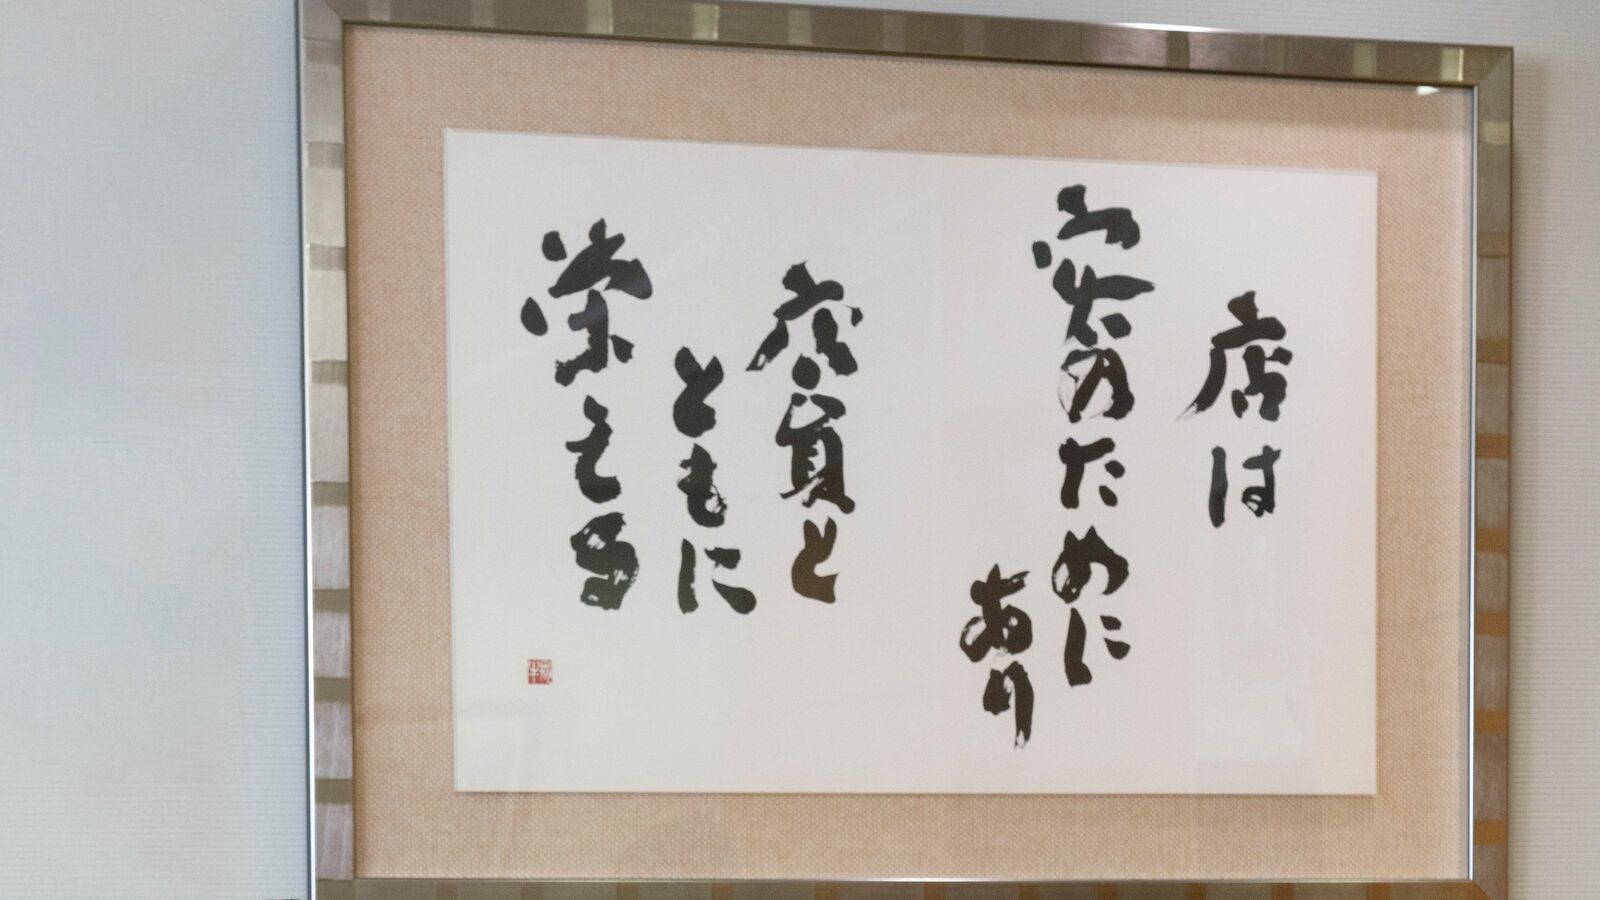 店は
客のためにあり
店員と
ともに
栄える